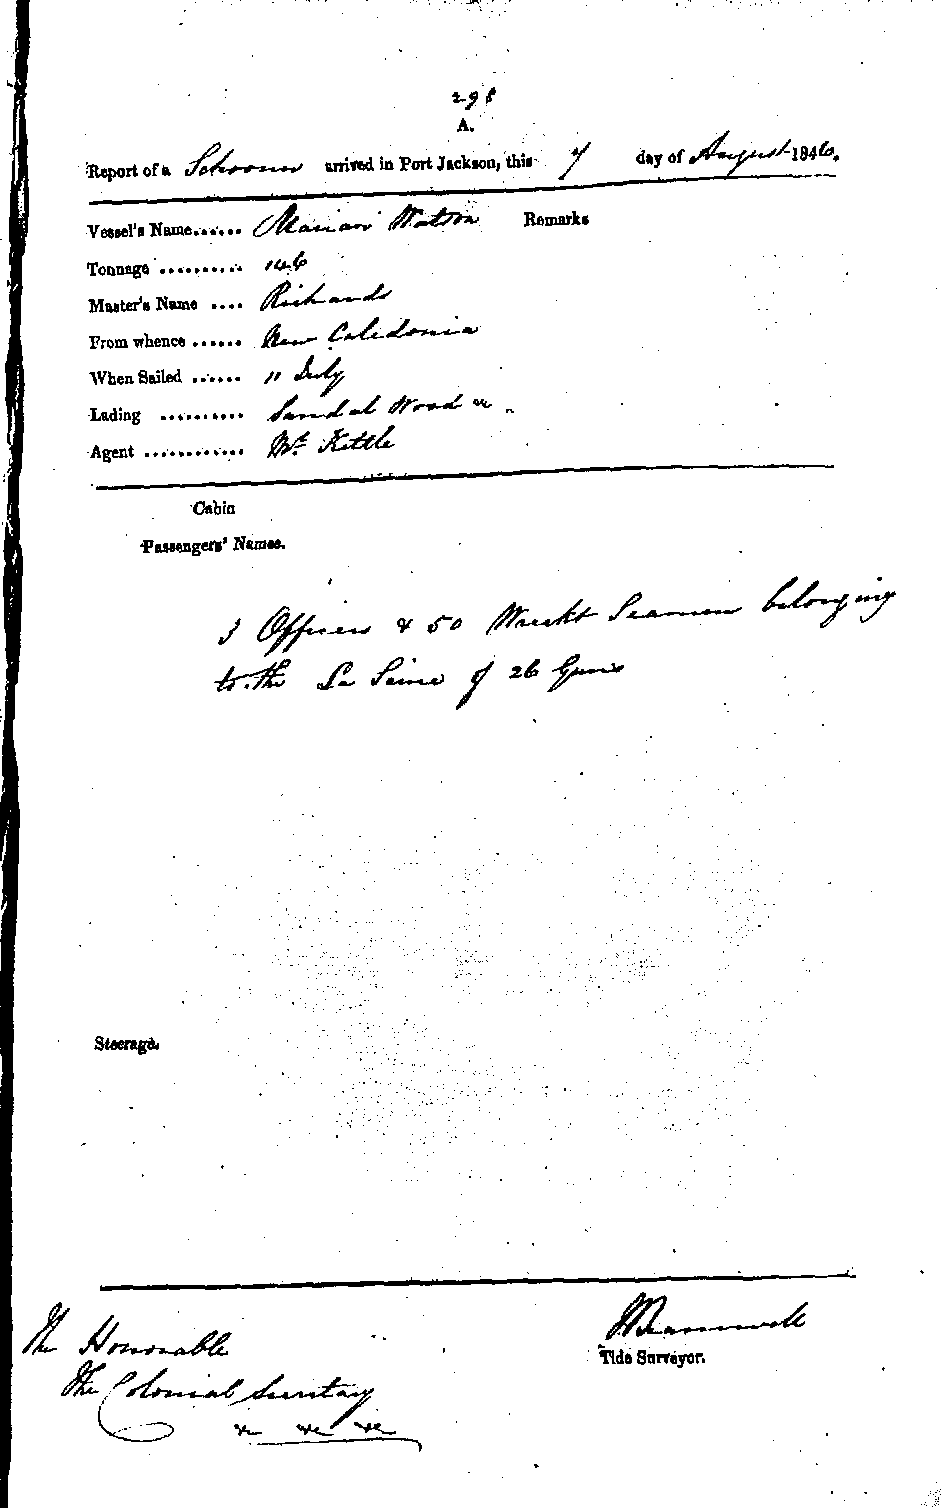 298
A.
Report of a Schooner arrived in Port Jackson, this 7 day of August 1846.
Vessel's Name...... Marian Watson Remarks
Tonnage .......... 146
Master's Name .... Richards
From whence ...... New Caledonia
When Sailed ...... 11 July
Lading .......... Sandal Wood &c
Agent ............ Mr. Kettle
Cabin
Passengers' Names.
3 Officers & 50 Wreckt Seamen belonging
to the La Seine of 26 Guns
Steerage.
The Honorable
The Colonial Secretary
&c &c &c
Bramwell
Tide Surveyor.